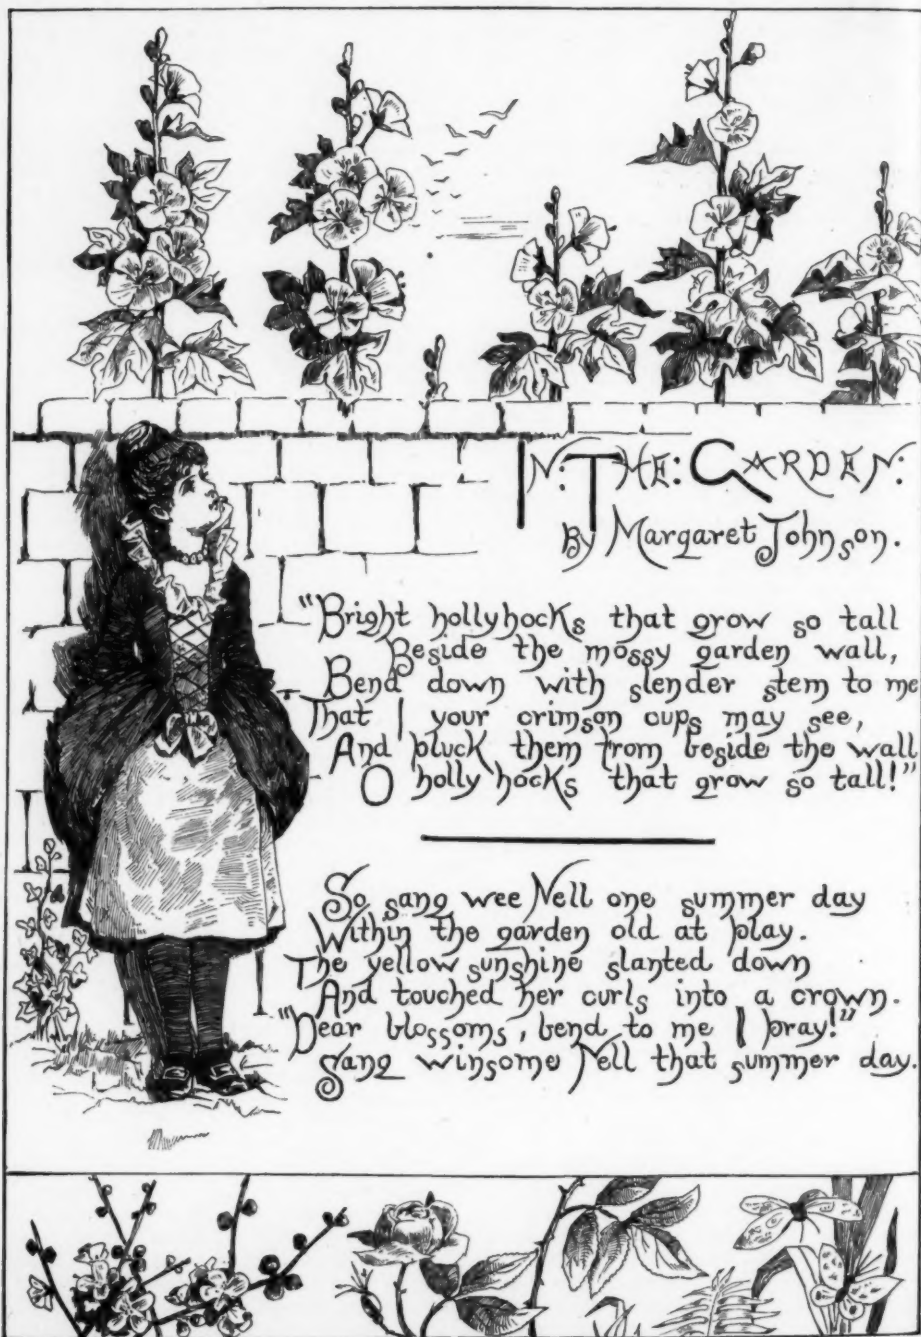 IN: THE: GARDEN:
By Margaret Johnson.
"Bright hollyhocks that grow so tall
Beside the mossy garden wall,
Bend down with slender stem to me
That I your crimson cups may see,
And pluck them from beside the wall
O hollyhocks that grow so tall!"
So sang wee Nell one summer day
Within the garden old at play.
The yellow sunshine slanted down
And touched her curls into a crown.
"Dear blossoms, bend to me I pray!"
Sang winsome Nell that summer day.